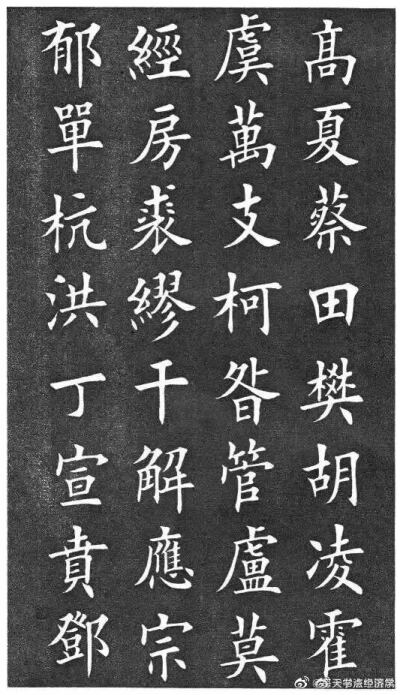 髙夏蔡田樊胡凌霍
虞萬支柯昝管盧莫
經房裘繆干解應宗
郁單杭洪丁宣賁鄧